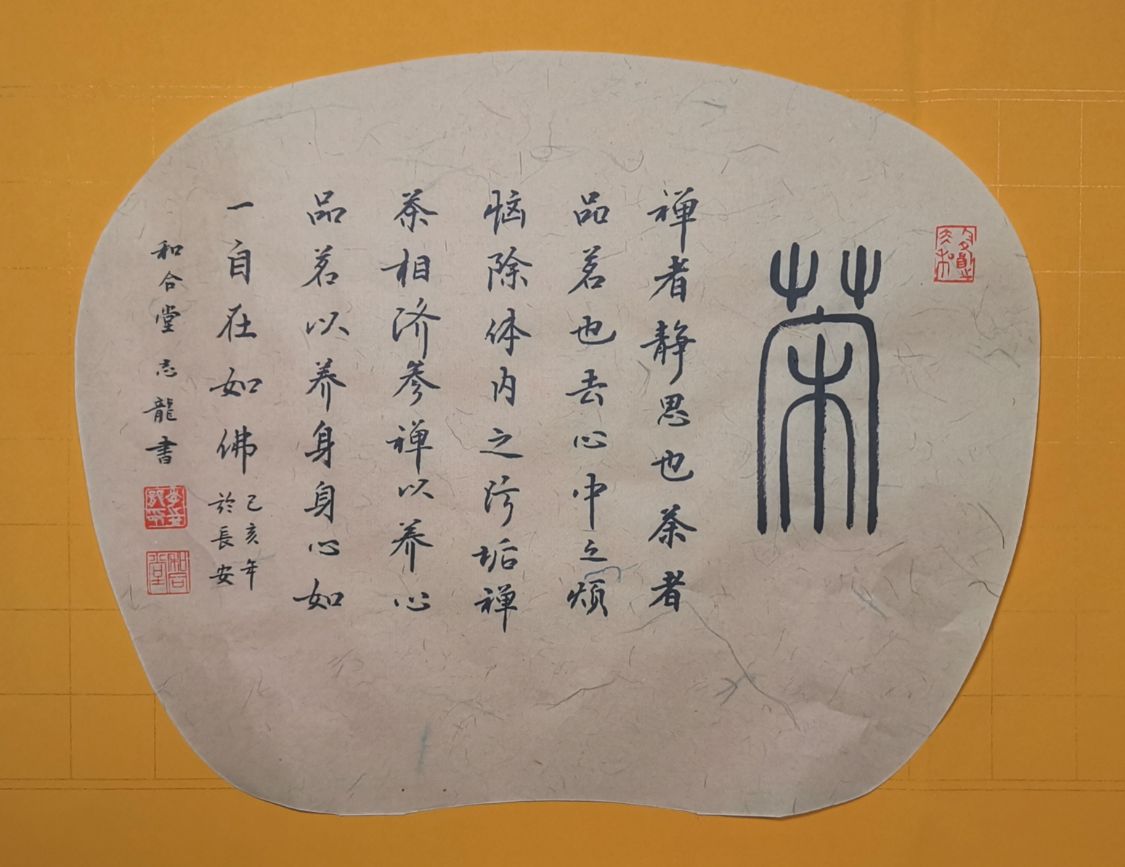 茶
禅者静思也茶者
品茗也去心中之烦
恼除体内之污垢禅
茶相济参禅以养心
品茗以养身身心如
一自在如佛
己亥年
於長安
和合堂志龍书